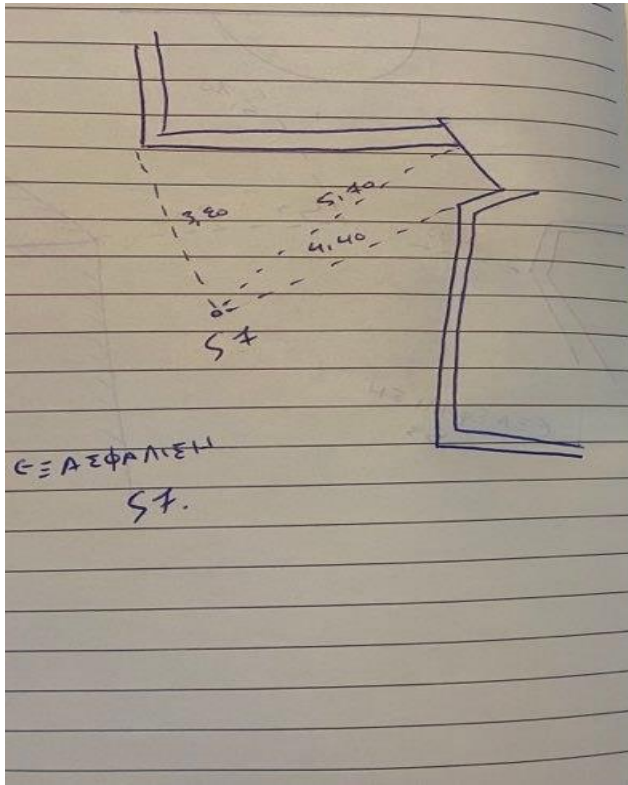 3,80
5,70
4,40
S7
ΕΞΑΣΦΑΛΙΣΗ
S7.